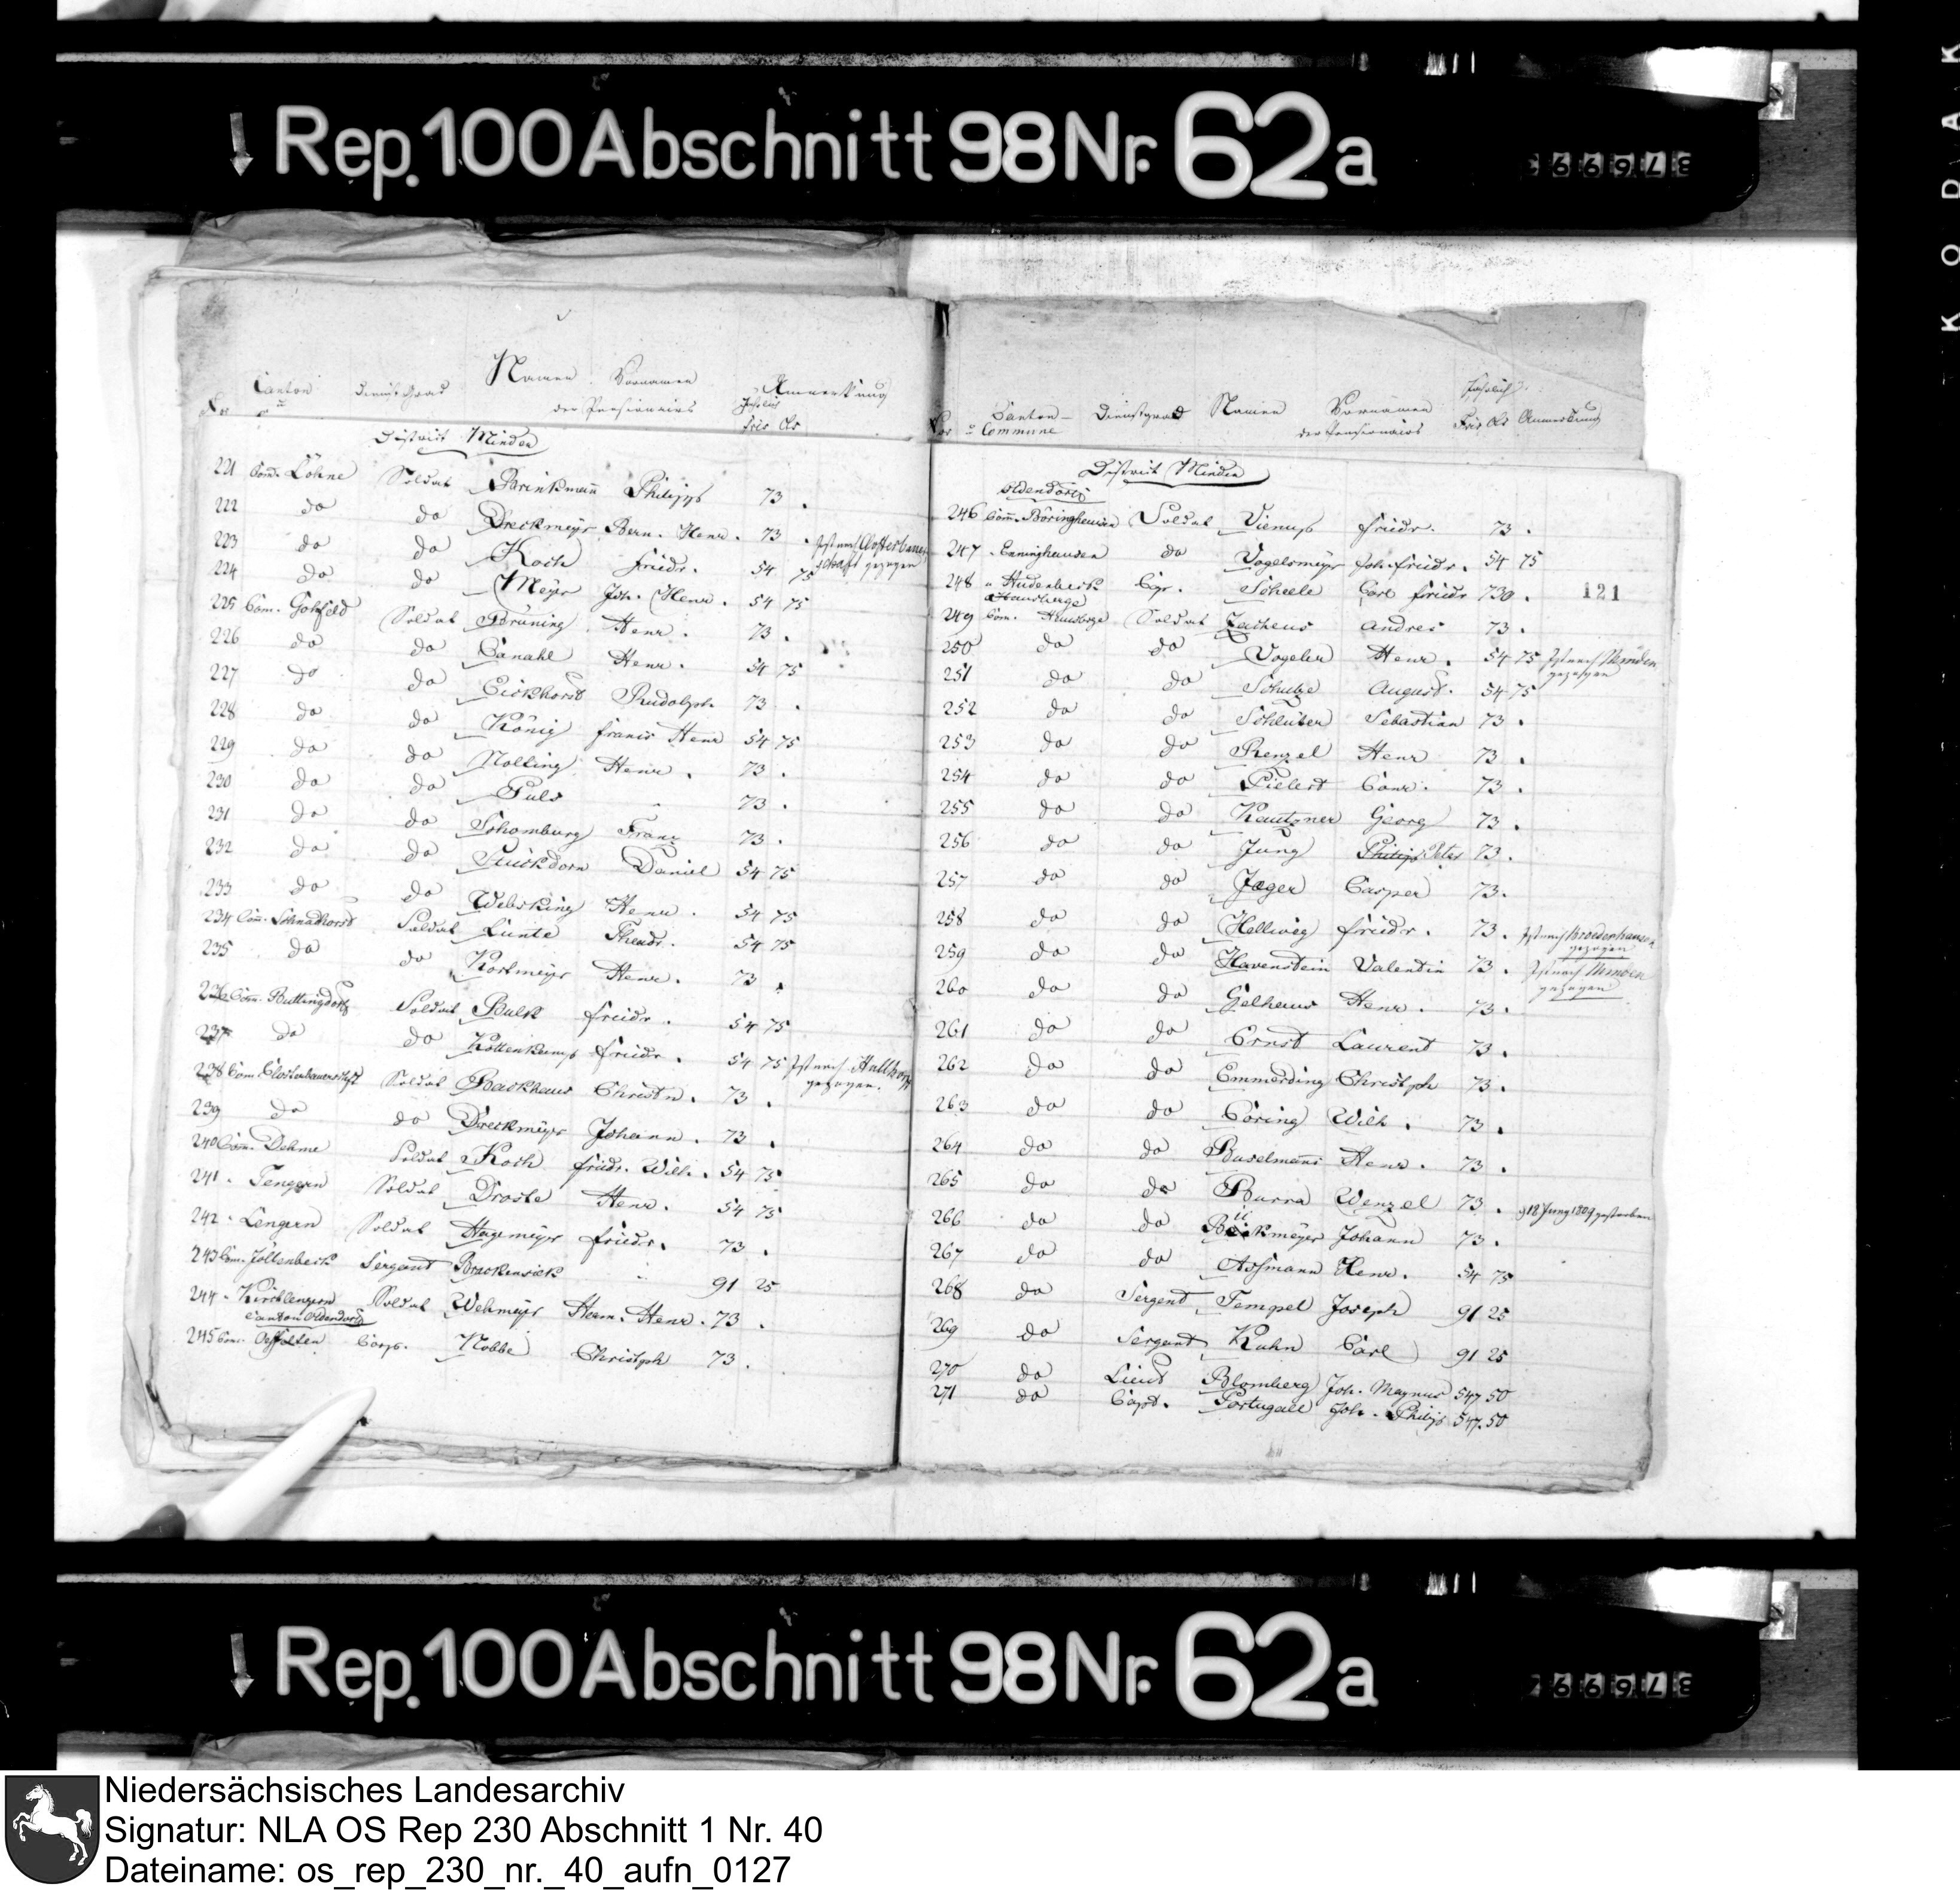 Rep. 100 Abschnitt 98 Nr. 62a
KODAK
Nro Canton Dienst Grad Namen Vornamen Jährlich Anmerkung
der Pensionairs
frcs Cts
District Minden
221 Com. Löhne Soldat Brinkmann Philipp 73 .
222 do do Dreckmeyer Bern. Henr. 73 .
223 do do Koch friedr. 54 75 Ist nach Closterbauerschaft gezogen
224 do do Meyer Joh. Henr. 54 75
225 Com. Gohfeld Soldat Brüning Henr. 73 .
226 do do Canahl Henr. 54 75
227 do do Eickhorst Rudolph 73 .
228 do do König franis Henr 54 75
229 do do Nolting Henr. 73 .
230 do do Puls - 73 .
231 do do Schomburg Franz 73 .
232 do do Stuckdorn Daniel 54 75
233 do do Webeking Henr. 54 75
234 Com. Schnadhorst Soldat Lunte Theodr. 54 75
235 do do Kortmeyer Henr. 73 .
236 Com. Buttingdorf Soldat Bulk friedr. 54 75
237 do do Kottenkamp friedr. 54 75 Ist nach gezogen.
238 Com. Closterbauerschaft Soldat Backhaus Christn. 73 .
239 do do Dreckmeyer Johann . 73 .
240 Com. Dehme Soldat Koch friedr. Wilh. 54 75
241 " Tengern Soldat Droste Henr. 54 75
242 " Lengern Soldat Hagemeyer friedr. 73 .
243 Com. Jöllenbeck Sergeant Brackensiek " 91 25
244 " Kirchlengern Soldat Wehmeyer Herm. Henr. 73 .
Canton Oldendorf
245 Com. Corp. Nobbe Christoph 73 .
Nro Canton Dienstgrad Namen Vornamen Jährlich
Commune der Pensionairs Frcs Cts Anmerkung
District Minden
Oldendorf
246 Com. Böringhausen Soldat friedr. 73 .
247 " Enninghausen do Vogelsmeyer Joh. friedr. 54 75
248 " Hudenbeck Cpr. Scheele Carl friedr 730 .
121
Hausberge
249 Com. Hausberge Soldat Zacheus Andres 73 .
250 do do Vogeler Henr. 54 75 Ist nach Minden gezogen
251 do do Schulze August. 54 75
252 do do Schlüter Sebastian 73 .
253 do do Renzel Henr 73 .
254 do do Pielert Conr. 73 .
255 do do Kautzner Georg 73 .
256 do do Jung Philipp Peter 73 .
257 do do Jaeger Casper 73 .
258 do do Hellweg friedr. 73 . Ist nach gezogen
259 do do Havenstein Valentin 73 . Ist nach Minden gezogen
260 do do Gelhaus Henr. 73 .
261 do do Ernst Laurent 73 .
262 do do Emmerding Christoph 73 .
263 do do Cöring Wilh. 73 .
264 do do Buselmann Henr. 73 .
265 do do Burra Wenzel 73 . d 18 Juny 1809 gestorben
266 do do Bückmeyer Johann 73 .
267 do do Assmann Henr. 54 75
268 do Sergent Tempel Joseph 91 25
269 do Sergeant Kuhn Carl 91 25
270 do Lieut Blomberg Joh. Magnus 547 50
271 do Capt. Portugall Joh. Philip 547 50
Rep. 100 Abschnitt 98 Nr. 62a
Niedersächsisches Landesarchiv
Signatur: NLA OS Rep 230 Abschnitt 1 Nr. 40
Dateiname: os_rep_230_nr._40_aufn_0127